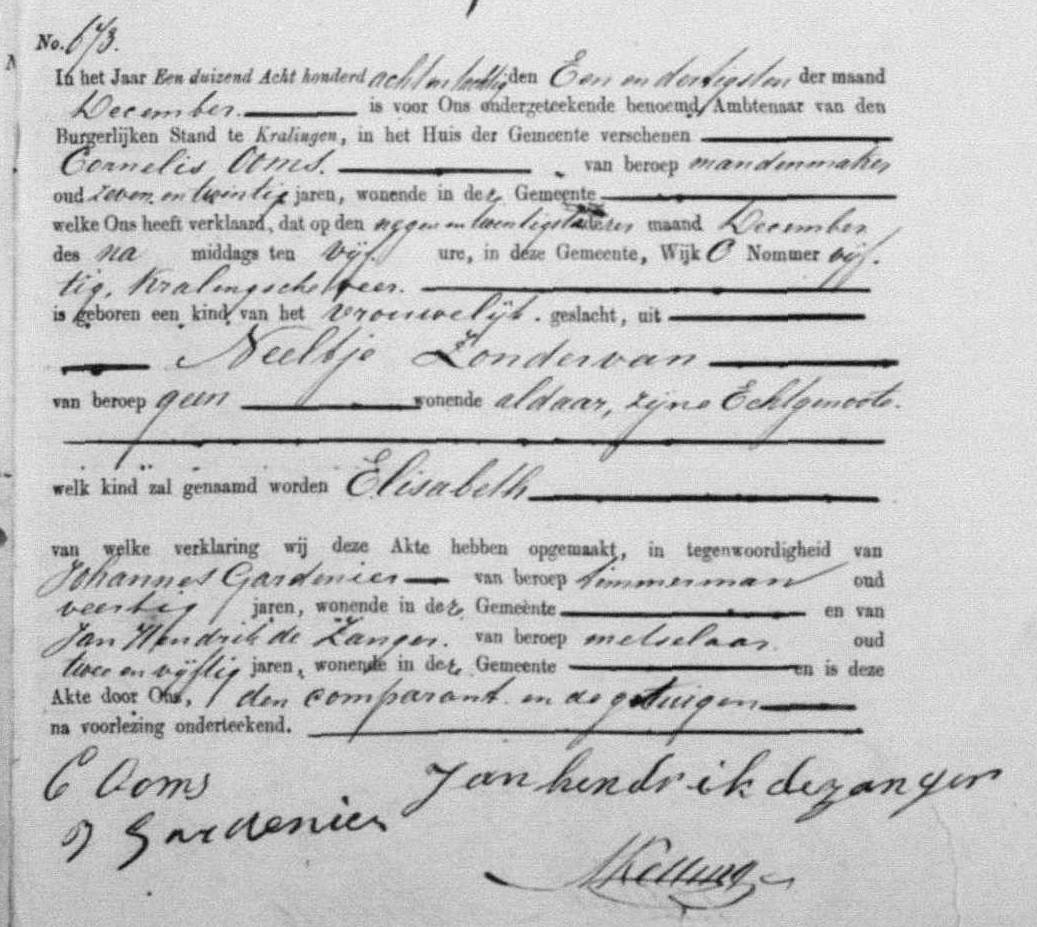 No. 673.
In het Jaar Een duizend Acht honderd acht en tachtig den Een en dertigsten der maand
December. is voor Ons ondergeteekende benoemd Ambtenaar van den
Burgerlijken Stand te Kralingen, in het Huis der Gemeente verschenen
Cornelis Ooms. van beroep mandenmaker
oud zeven en twintig jaren, wonende in deze Gemeente
welke Ons heeft verklaard, dat op den negen en twintigsten dezer maand December
des na middags ten vijf ure, in deze Gemeente, Wijk C Nommer vijf-
tig, Kralingscheveer.
is geboren een kind van het vrouwelijk. geslacht, uit
Neeltje Zondervan
van beroep geen wonende aldaar, zijne Echtgenoote.
welk kind zal genaamd worden Elisabeth
van welke verklaring wij deze Akte hebben opgemaakt, in tegenwoordigheid van
Johannes Gardenier van beroep timmerman oud
veertig jaren, wonende in deze Gemeente en van
Jan Hendrik de Zanger. van beroep metselaar oud
twee en vijftig jaren, wonende in deze Gemeente en is deze
Akte door Ons, den comparant en de getuigen
na voorlezing onderteekend.
C Ooms Jan hendrik dezanger
J Gardenier